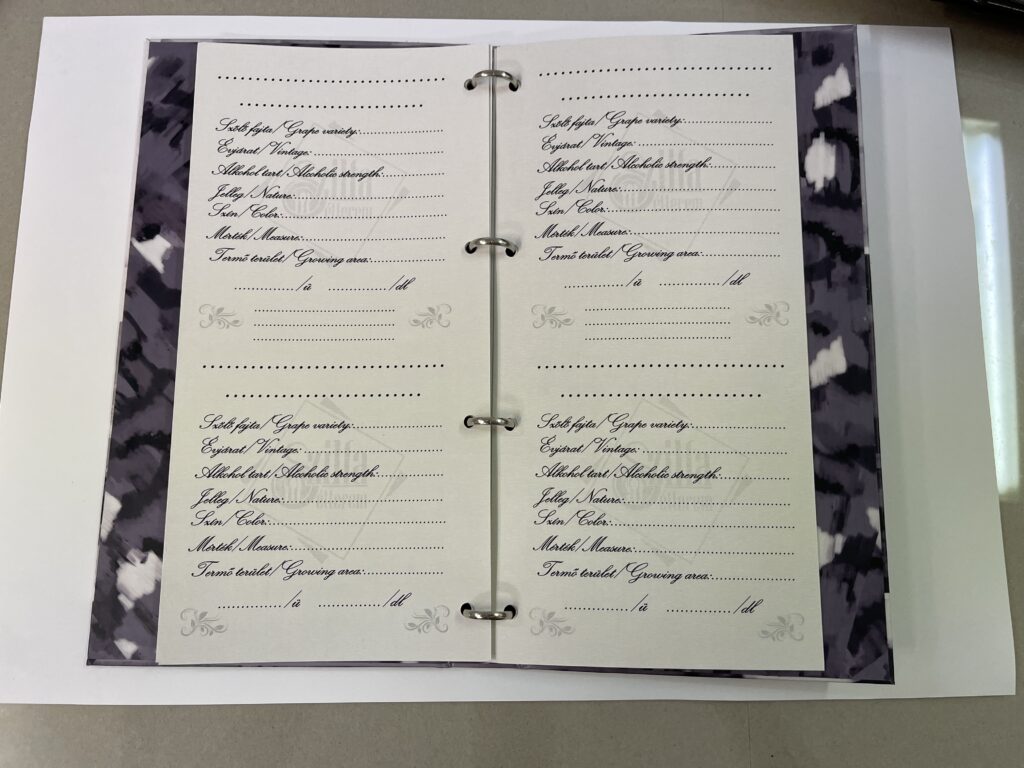 Szőlő fajta/Grape variety:
Évjárat/Vintage:
Alkohol tart/Alcoholic strength:
Jelleg/Nature:
Szín/Color:
Mérték/Measure:
Termő terület/Growing area:
/ü /dl
Szőlő fajta/Grape variety:
Évjárat/Vintage:
Alkohol tart/Alcoholic strength:
Jelleg/Nature:
Szín/Color:
Mérték/Measure:
Termő terület/Growing area:
/ü /dl
Szőlő fajta/Grape variety:
Évjárat/Vintage:
Alkohol tart/Alcoholic strength:
Jelleg/Nature:
Szín/Color:
Mérték/Measure:
Termő terület/Growing area:
/ü /dl
Szőlő fajta/Grape variety:
Évjárat/Vintage:
Alkohol tart/Alcoholic strength:
Jelleg/Nature:
Szín/Color:
Mérték/Measure:
Termő terület/Growing area:
/ü /dl